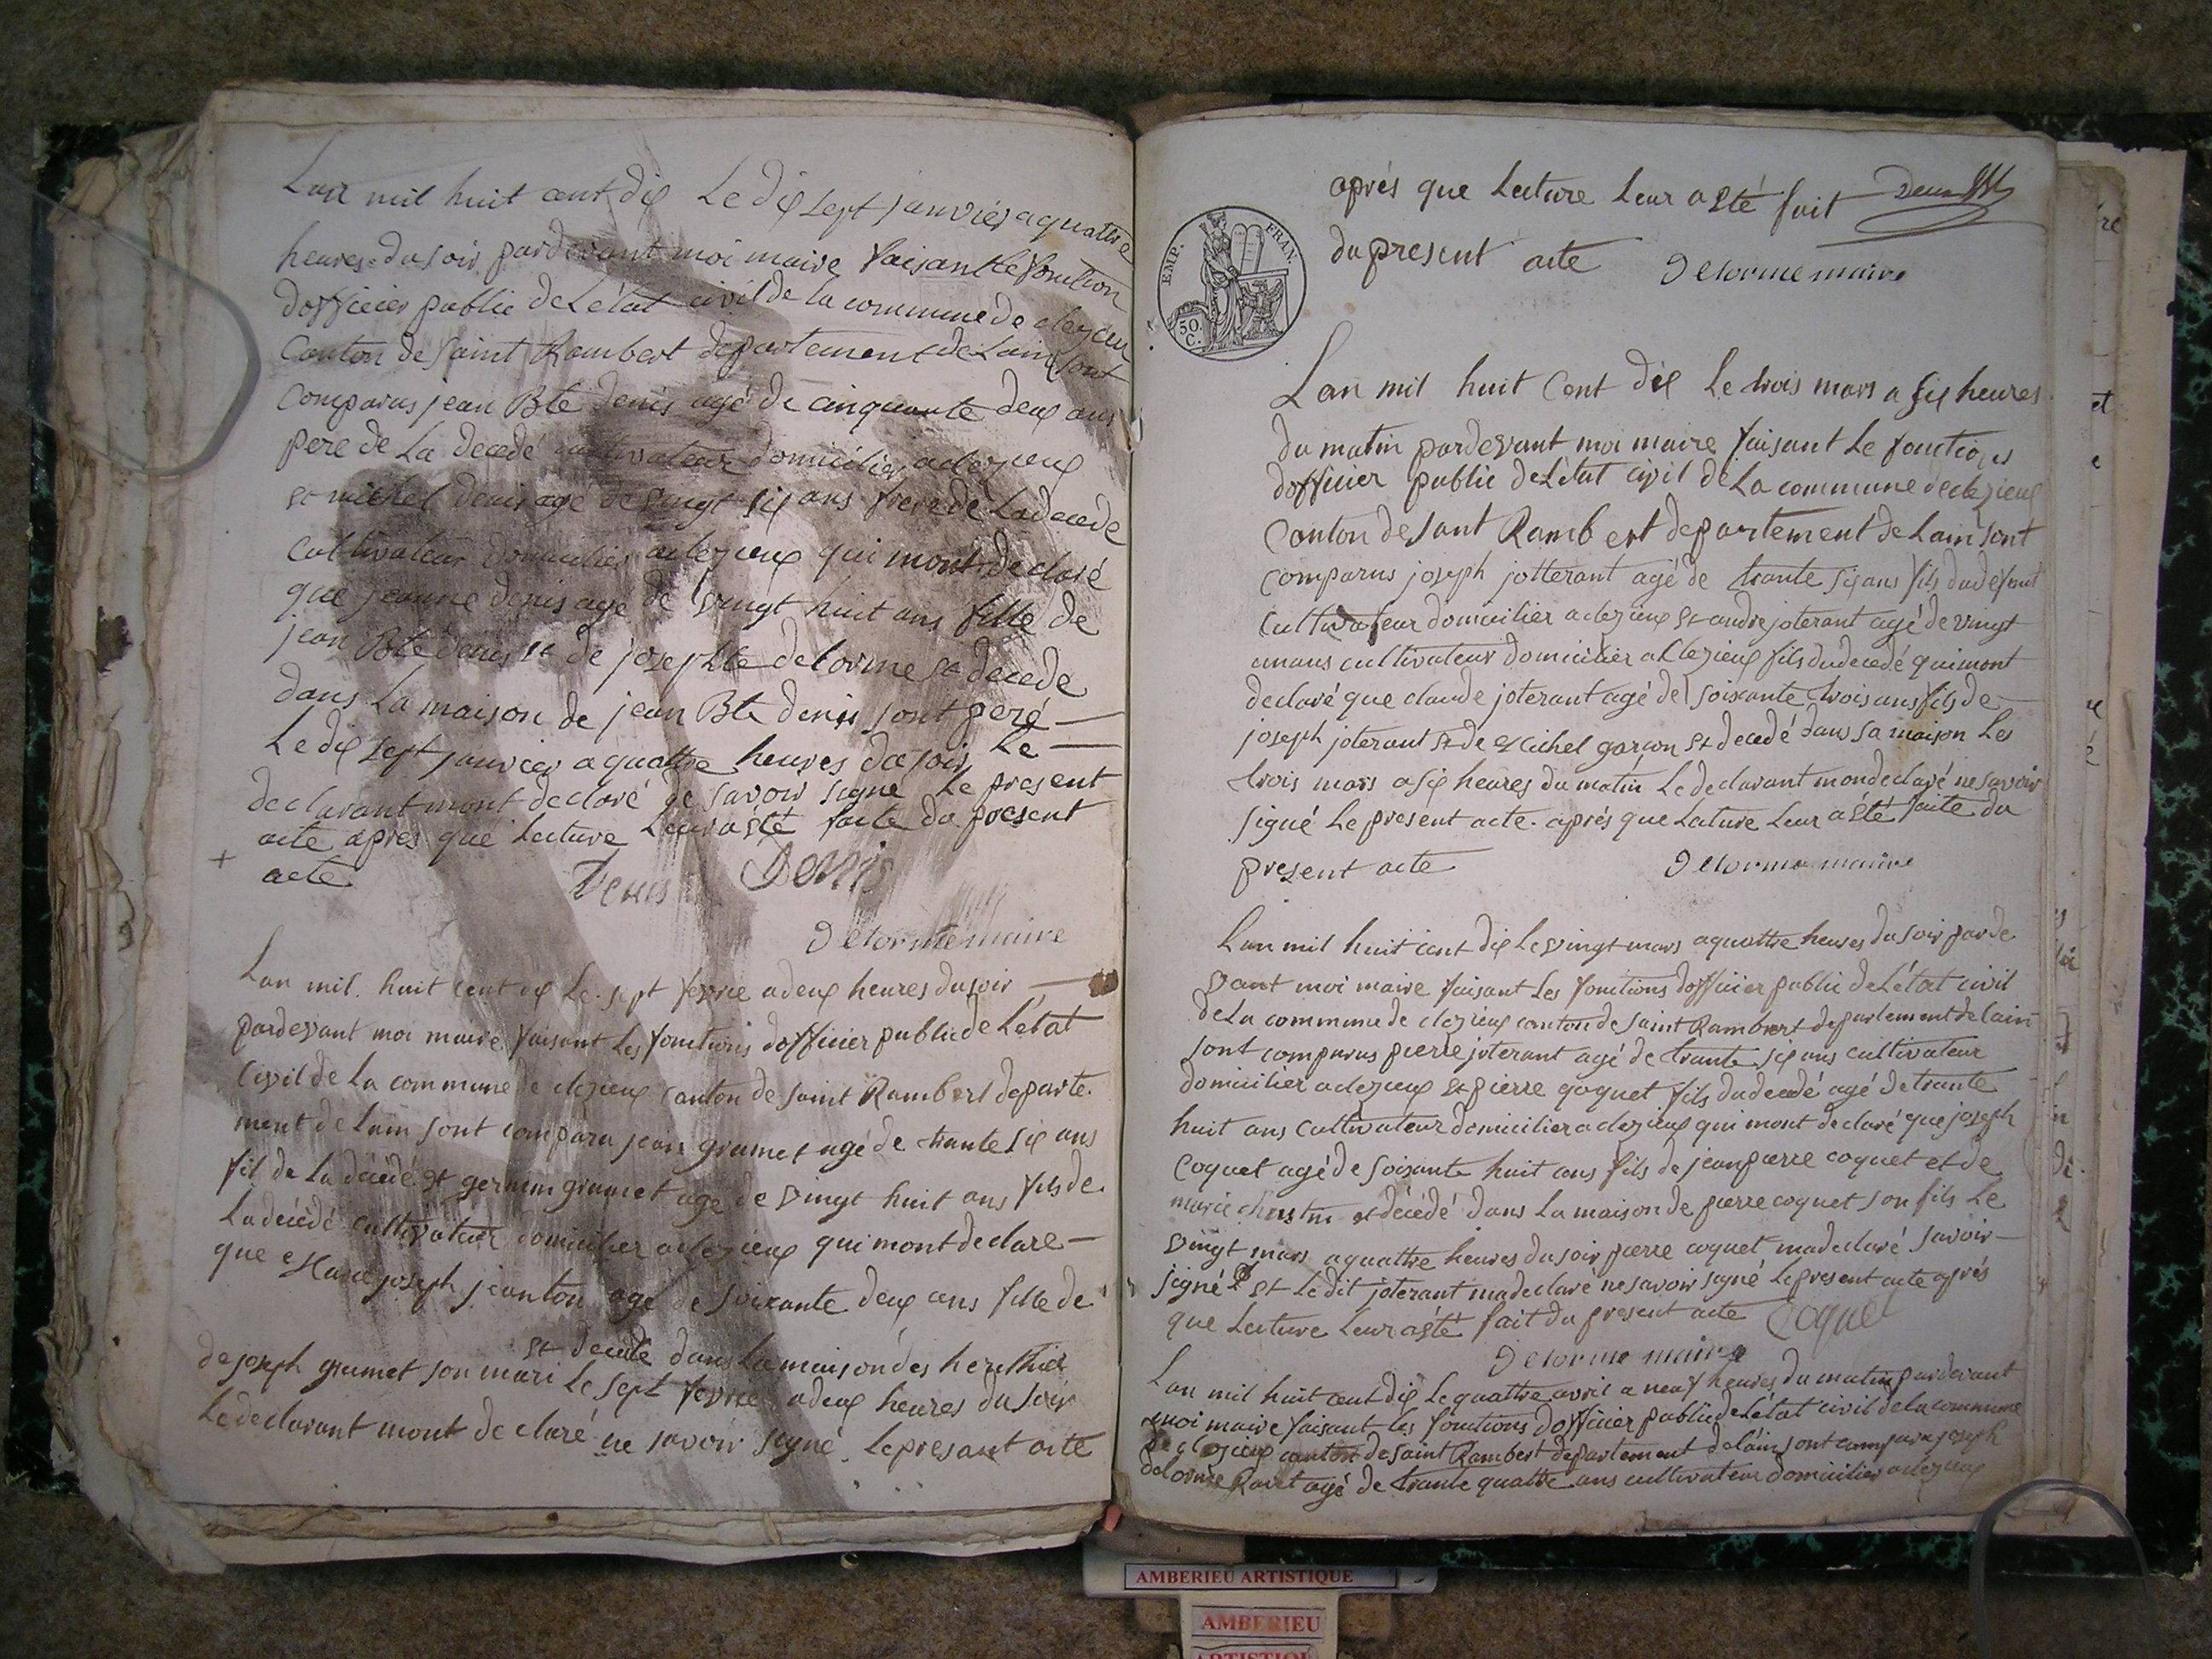 Lan mil huit cent dix Le dix sept janvier a quattre
heures du soir pardevant moi maire faisant Le fonction
dofficier public de Létat civil de la commune de clezieu
Canton de saint Rambert departement de Lain sont
comparus jean Bte denis agé de cinquante deux ans
pere de La decedé cultivateur domicilier a clezieux
et michel denis agé de vingt six ans frere de La decede
cultivateur domicilier a clezieux qui mont declaré
que jeanne denis agé de vingt huit ans fille de
jean Bte denis et de josephte delorme et decede
dans La maison de jean Bte denis sont peré
Le dix sept janvier a quattre heures du soir Le
declarant mont declaré de savoir signé Le present
acte apres que Lecture Leur a eté faite du present
+ acte
Denis Denis
Delorme maire
Lan mil huit cent dix Le sept fevrie a deux heures du soir
pardevant moi maire faisant Les fonctions dofficier public de Létat
Civil de La commune de clezieux canton de saint Rambert departe
ment de Lain sont comparu jean grumet agé de trante six ans
fil de La décédé et germin grumet age de vingt huit ans fils de
La décédé cultivateur domicilier a clezieux qui mont declare
que Marie joseph jeanton agé de soixante deux ans fille de
et decede dans La maison des herithier
de joseph grumet son mari Le sept fevrie a deux heures du soir
Le declarant mont declaré ne savoir signé Le presant acte
après que Lecture Leur a eté fait
du present acte
Delorme maire
EMP. FRAN.
50. C.
Lan mil huit Cent dix Le trois mars a six heures
du matin pardevant moi maire faisant Le fonctions
dofficier public de Létat civil de La commune de clezieux
Canton de sant Rambert departement de Lain sont
comparus joseph jotterant agé de trante six ans fils du defout
cultivateur domicilier a clezieux et andre joterant agé de vingt
un ans cultivateur domicilier a Clezieux fils du decedé qui mont
declaré que claude joterant agé de soixante trois ans fils de
joseph joterant et de Michel garçon et decedé dans sa maison Les
trois mars a six heures du matin Le declarant mon declaré ne savoir
signé Le présent acte. aprés que Lature Leur a eté faite du
present acte
Delorme maire
Lan mil huit cent dix Le vingt mars a quattre heures du soir parde
vant moi maire faisant Les fonctions dofficier public de Létat civil
de La commune de clezieux canton de saint Rambert departement de Lain
sont comparus pierre joterant agé de trante six ans cultivateur
domicilier a clezieux et pierre qoquet fils du decedé agé de trante
huit ans cultivateur domicilier a clezieux qui mont declaré que joseph
coquet agé de soixante huit ans fils de jean pierre coquet et de
marie christin et décédé dans La maison de pierre coquet son fils Le
vingt mars a quattre heures du soir pierre coquet ma declaré savoir
signé et Le dit joterant ma declaré ne savoir signé Le present acte aprés
que Lecture Leur a eté fait du present acte Coquet
Delorme maire
Lan mil huit cent dix Le quattre avril a neuf heures du matin pardevant
moi maire faisant les fonctions dofficier public de Létat civil de la commune
de clezieux canton de saint Rambert departement de lain sont comparu joseph
delorme agé de trante quattre ans cultivateur domicilier a clezieux
AMBERIEU ARTISTIQUE
AMBERIEU
ARTISTIQUE